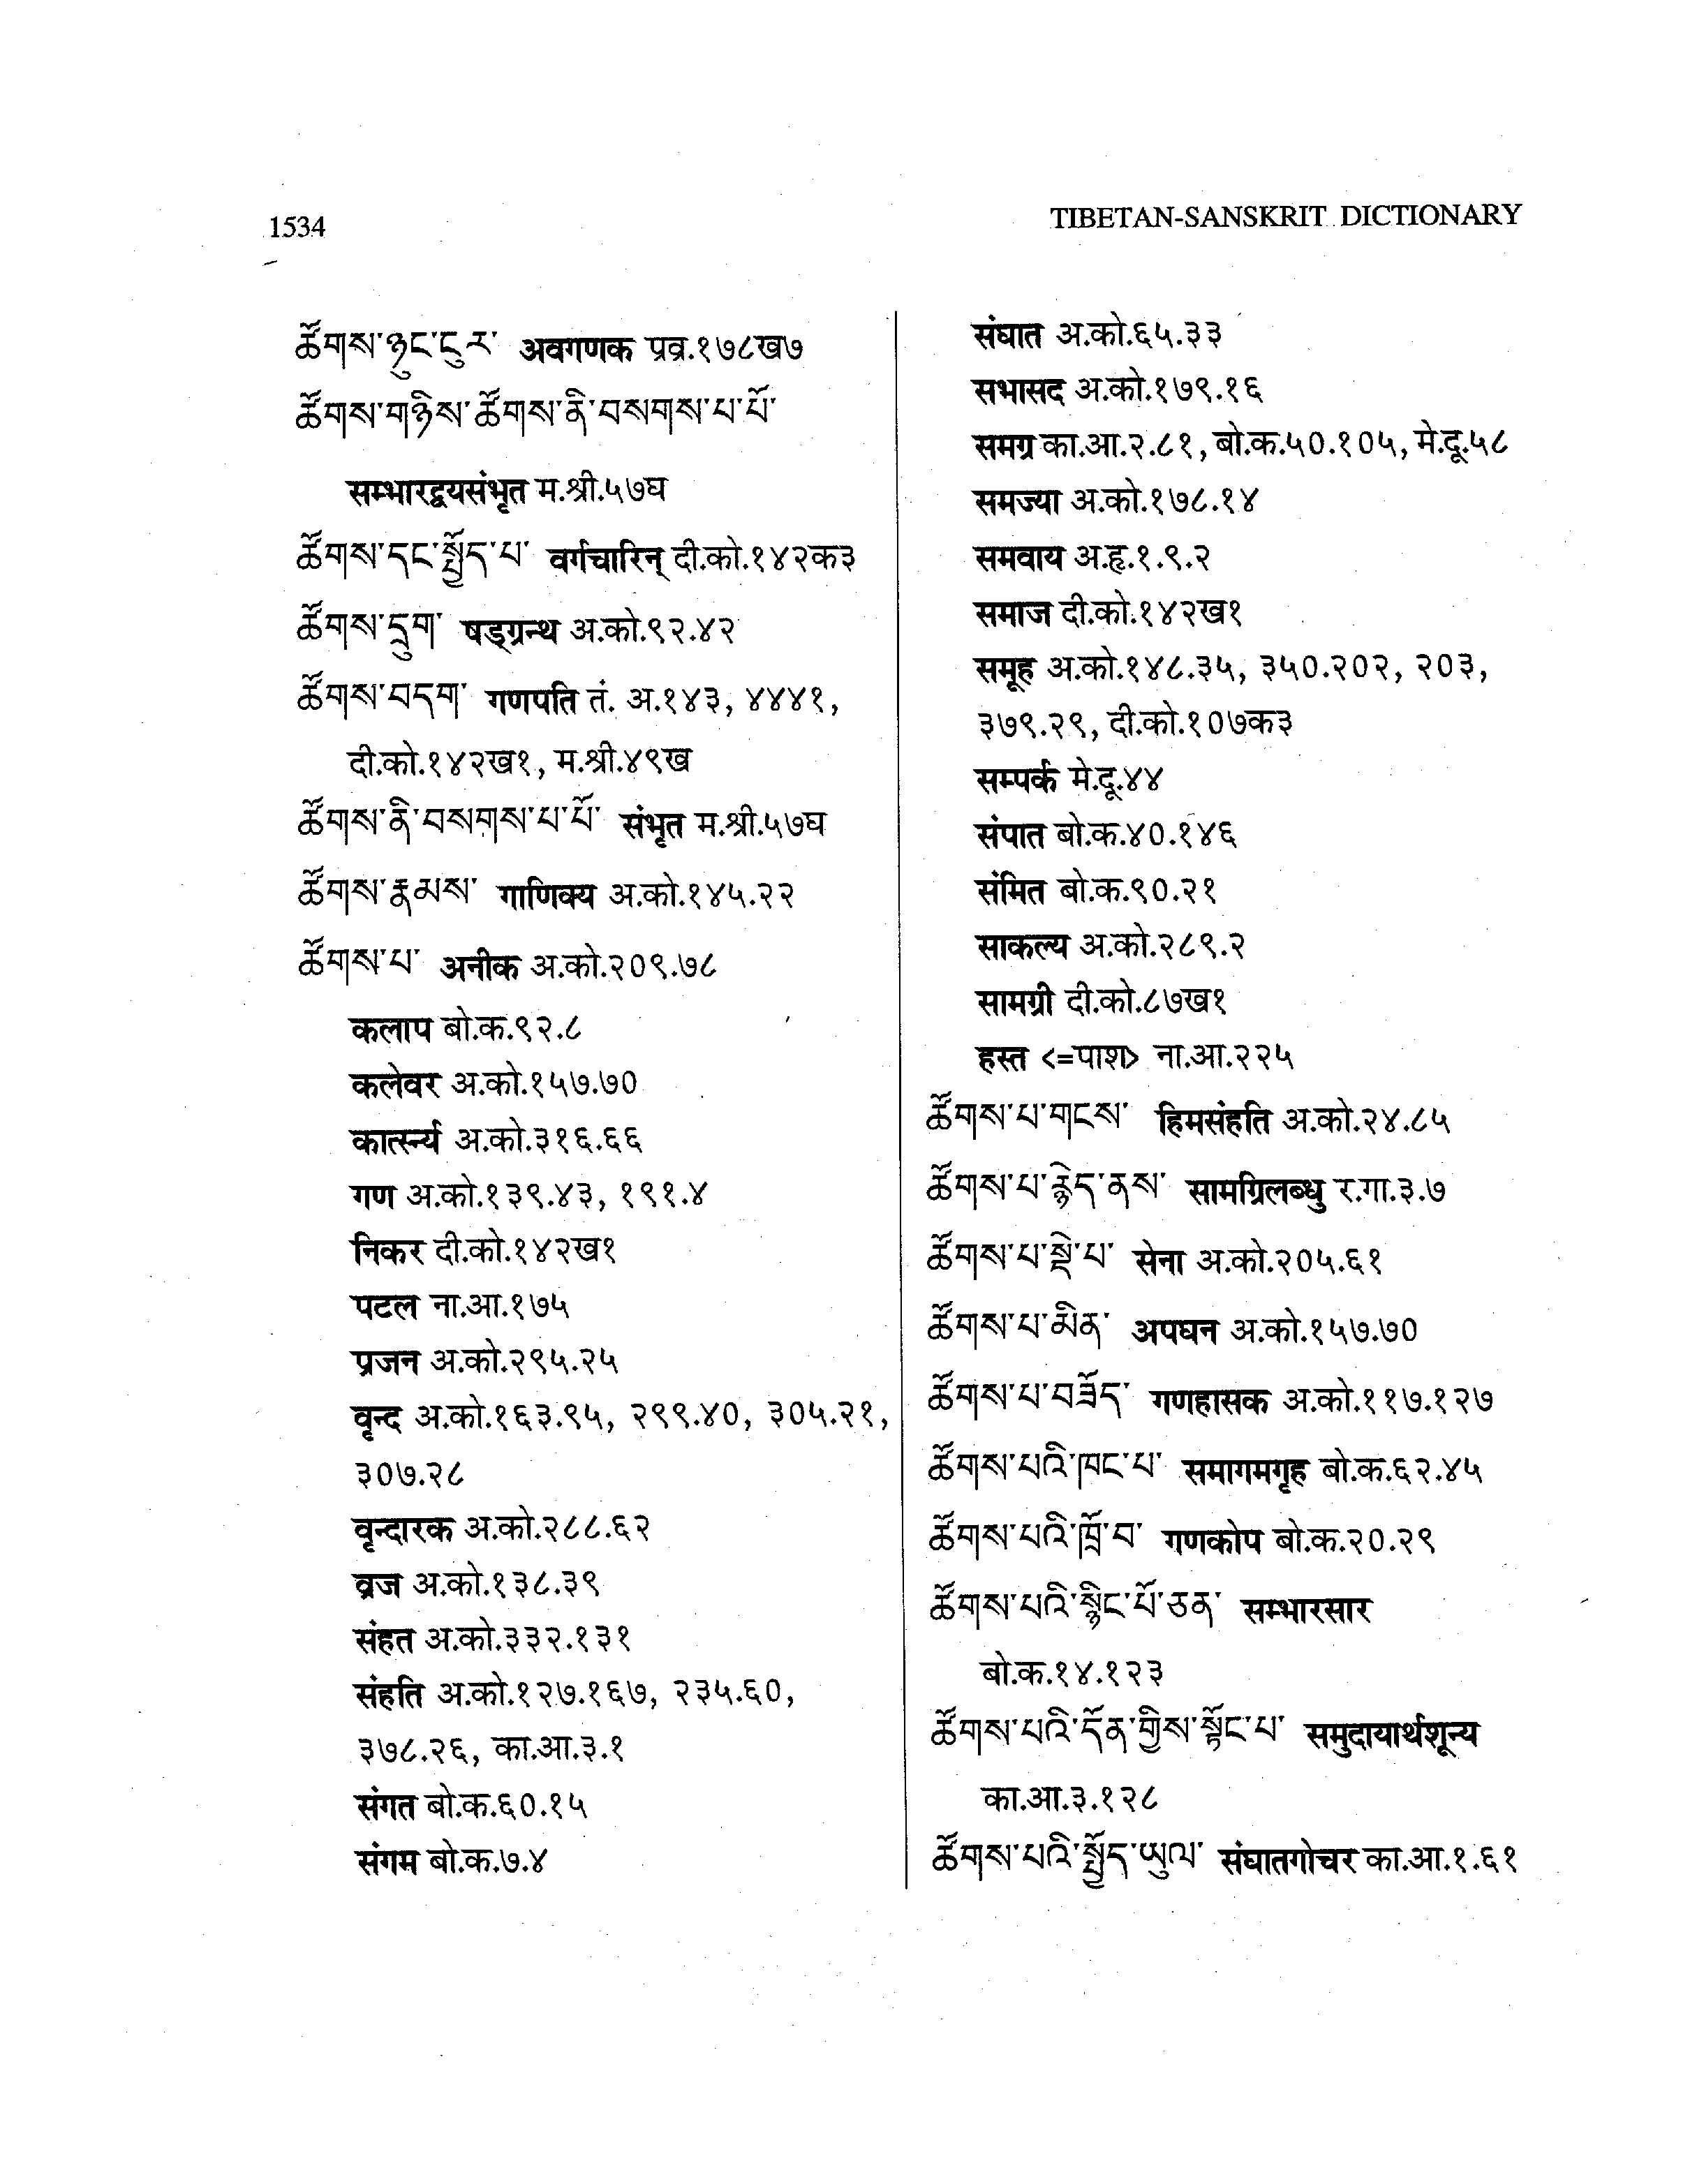 1534
TIBETAN-SANSKRIT DICTIONARY
ཚོགས་ཉུང་ངུར་ अवगणक प्रव्र.१७८ख७
ཚོགས་གཉིས་ཚོགས་ནི་བསགས་པ་པོ་
सम्भारद्वयसंभृत म.श्री.५७घ
ཚོགས་དང་སྤྱོད་པ་ वर्गचारिन् दी.को.१४२क३
ཚོགས་དྲུག་ षड्ग्रन्थ अ.को.९२.४२
ཚོགས་བདག་ गणपति तं. अ.१४३, ४४४१,
दी.को.१४२ख१, म.श्री.४९ख
ཚོགས་ནི་བསགས་པ་པོ་ संभृत म.श्री.५७घ
ཚོགས་རྣམས་ गाणिक्य अ.को.१४५.२२
ཚོགས་པ་ अनीक अ.को.२०९.७८
कलाप बो.क.९२.८
कलेवर अ.को.१५७.७०
कार्त्स्न्य अ.को.३१६.६६
गण अ.को.१३९.४३, १९१.४
निकर दी.को.१४२ख१
पटल ना.आ.१७५
प्रजन अ.को.२९५.२५
वृन्द अ.को.१६३.९५, २९९.४०, ३०५.२१,
३०७.२८
वृन्दारक अ.को.२८८.६२
व्रज अ.को.१३८.३९
संहत अ.को.३३२.१३१
संहति अ.को.१२७.१६७, २३५.६०,
३७८.२६, का.आ.३.१
संगत बो.क.६०.१५
संगम बो.क.७.४
संघात अ.को.६५.३३
सभासद अ.को.१७९.१६
समग्र का.आ.२.८१, बो.क.५०.१०५, मे.दू.५८
समज्या अ.को.१७८.१४
समवाय अ.हृ.१.९.२
समाज दी.को.१४२ख१
समूह अ.को.१४८.३५, ३५०.२०२, २०३,
३७९.२९, दी.को.१०७क३
सम्पर्क मे.दू.४४
संपात बो.क.४०.१४६
संमित बो.क.९०.२१
साकल्य अ.को.२८९.२
सामग्री दी.को.८७ख१
हस्त <=पाश> ना.आ.२२५
ཚོགས་པ་གངས་ हिमसंहति अ.को.२४.८५
ཚོགས་པ་རྙེད་ནས་ सामग्रिलब्धु र.गा.३.७
ཚོགས་པ་སྡེ་པ་ सेना अ.को.२०५.६१
ཚོགས་པ་མིན་ अपघन अ.को.१५७.७०
ཚོགས་པ་བཟོད་ गणहासक अ.को.११७.१२७
ཚོགས་པའི་ཁང་པ་ समागमगृह बो.क.६२.४५
ཚོགས་པའི་ཁྲོ་བ་ गणकोप बो.क.२०.२९
ཚོགས་པའི་སྙིང་པོ་ཅན་ सम्भारसार
बो.क.१४.१२३
ཚོགས་པའི་དོན་གྱིས་སྟོང་པ་ समुदायार्थशून्य
का.आ.३.१२८
ཚོགས་པའི་སྤྱོད་ཡུལ་ संघातगोचर का.आ.१.६१